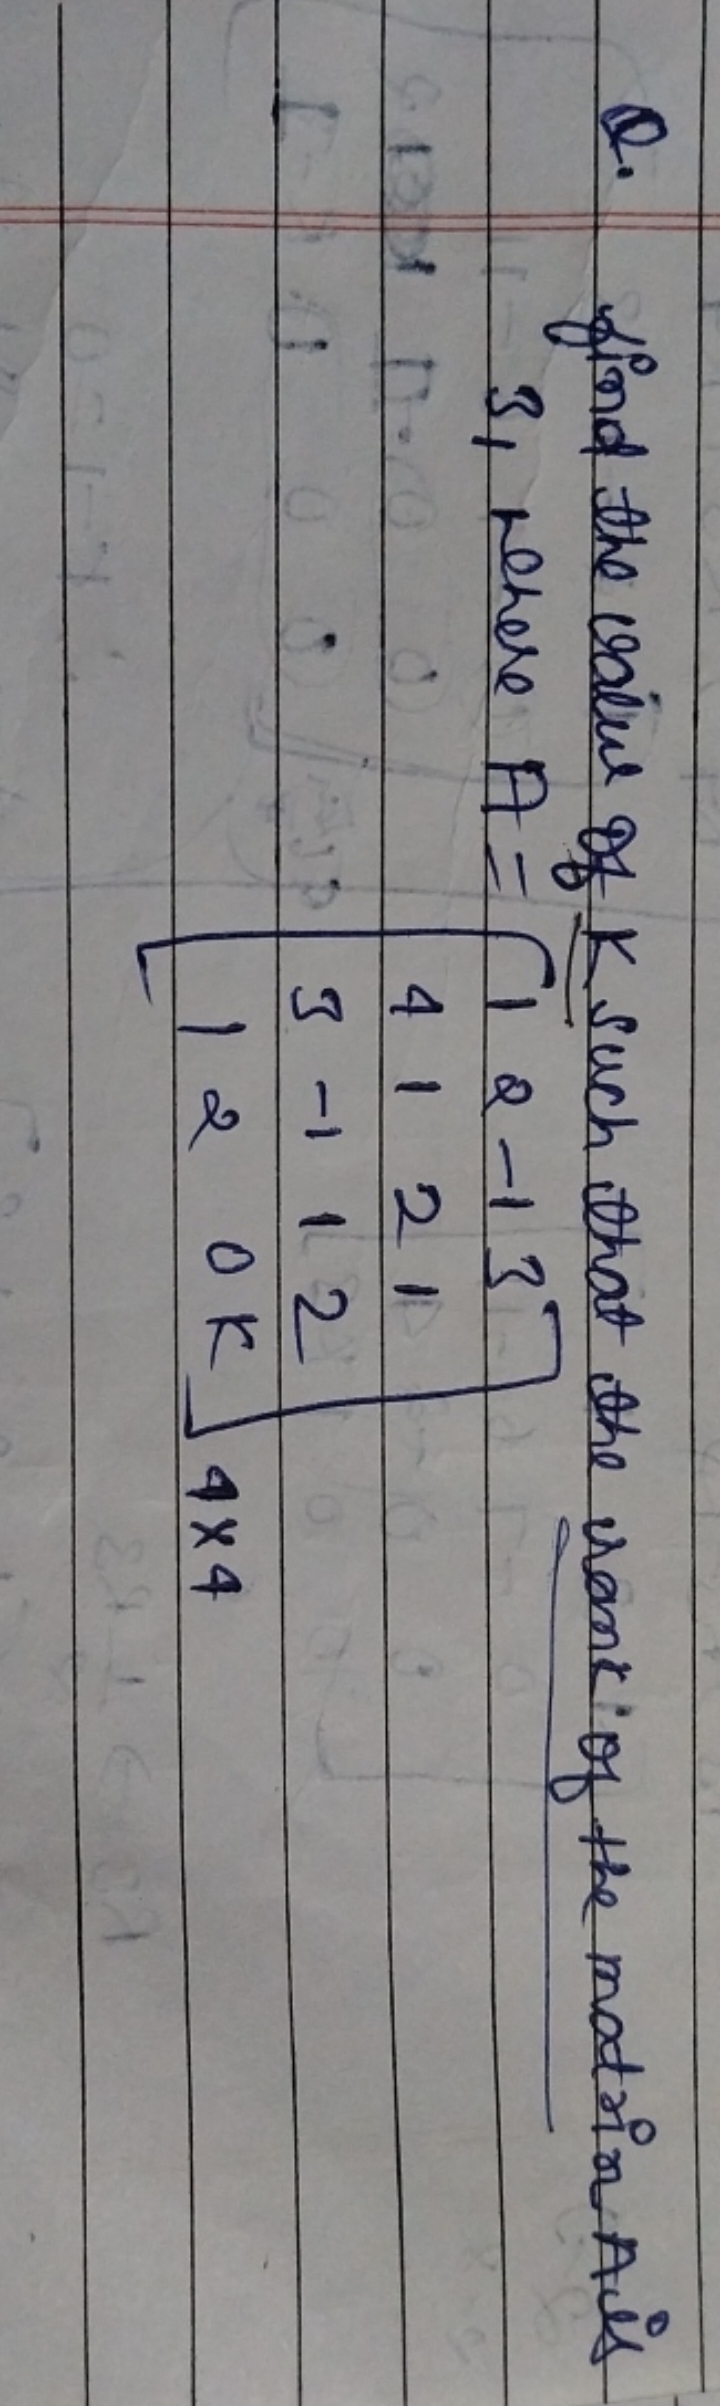 Q. find the value of K such that the rank of the matrix A is
3, where A =
1 2 -1 3
4 1 2 1
3 -1 1 2
1 2 0 K
4x4